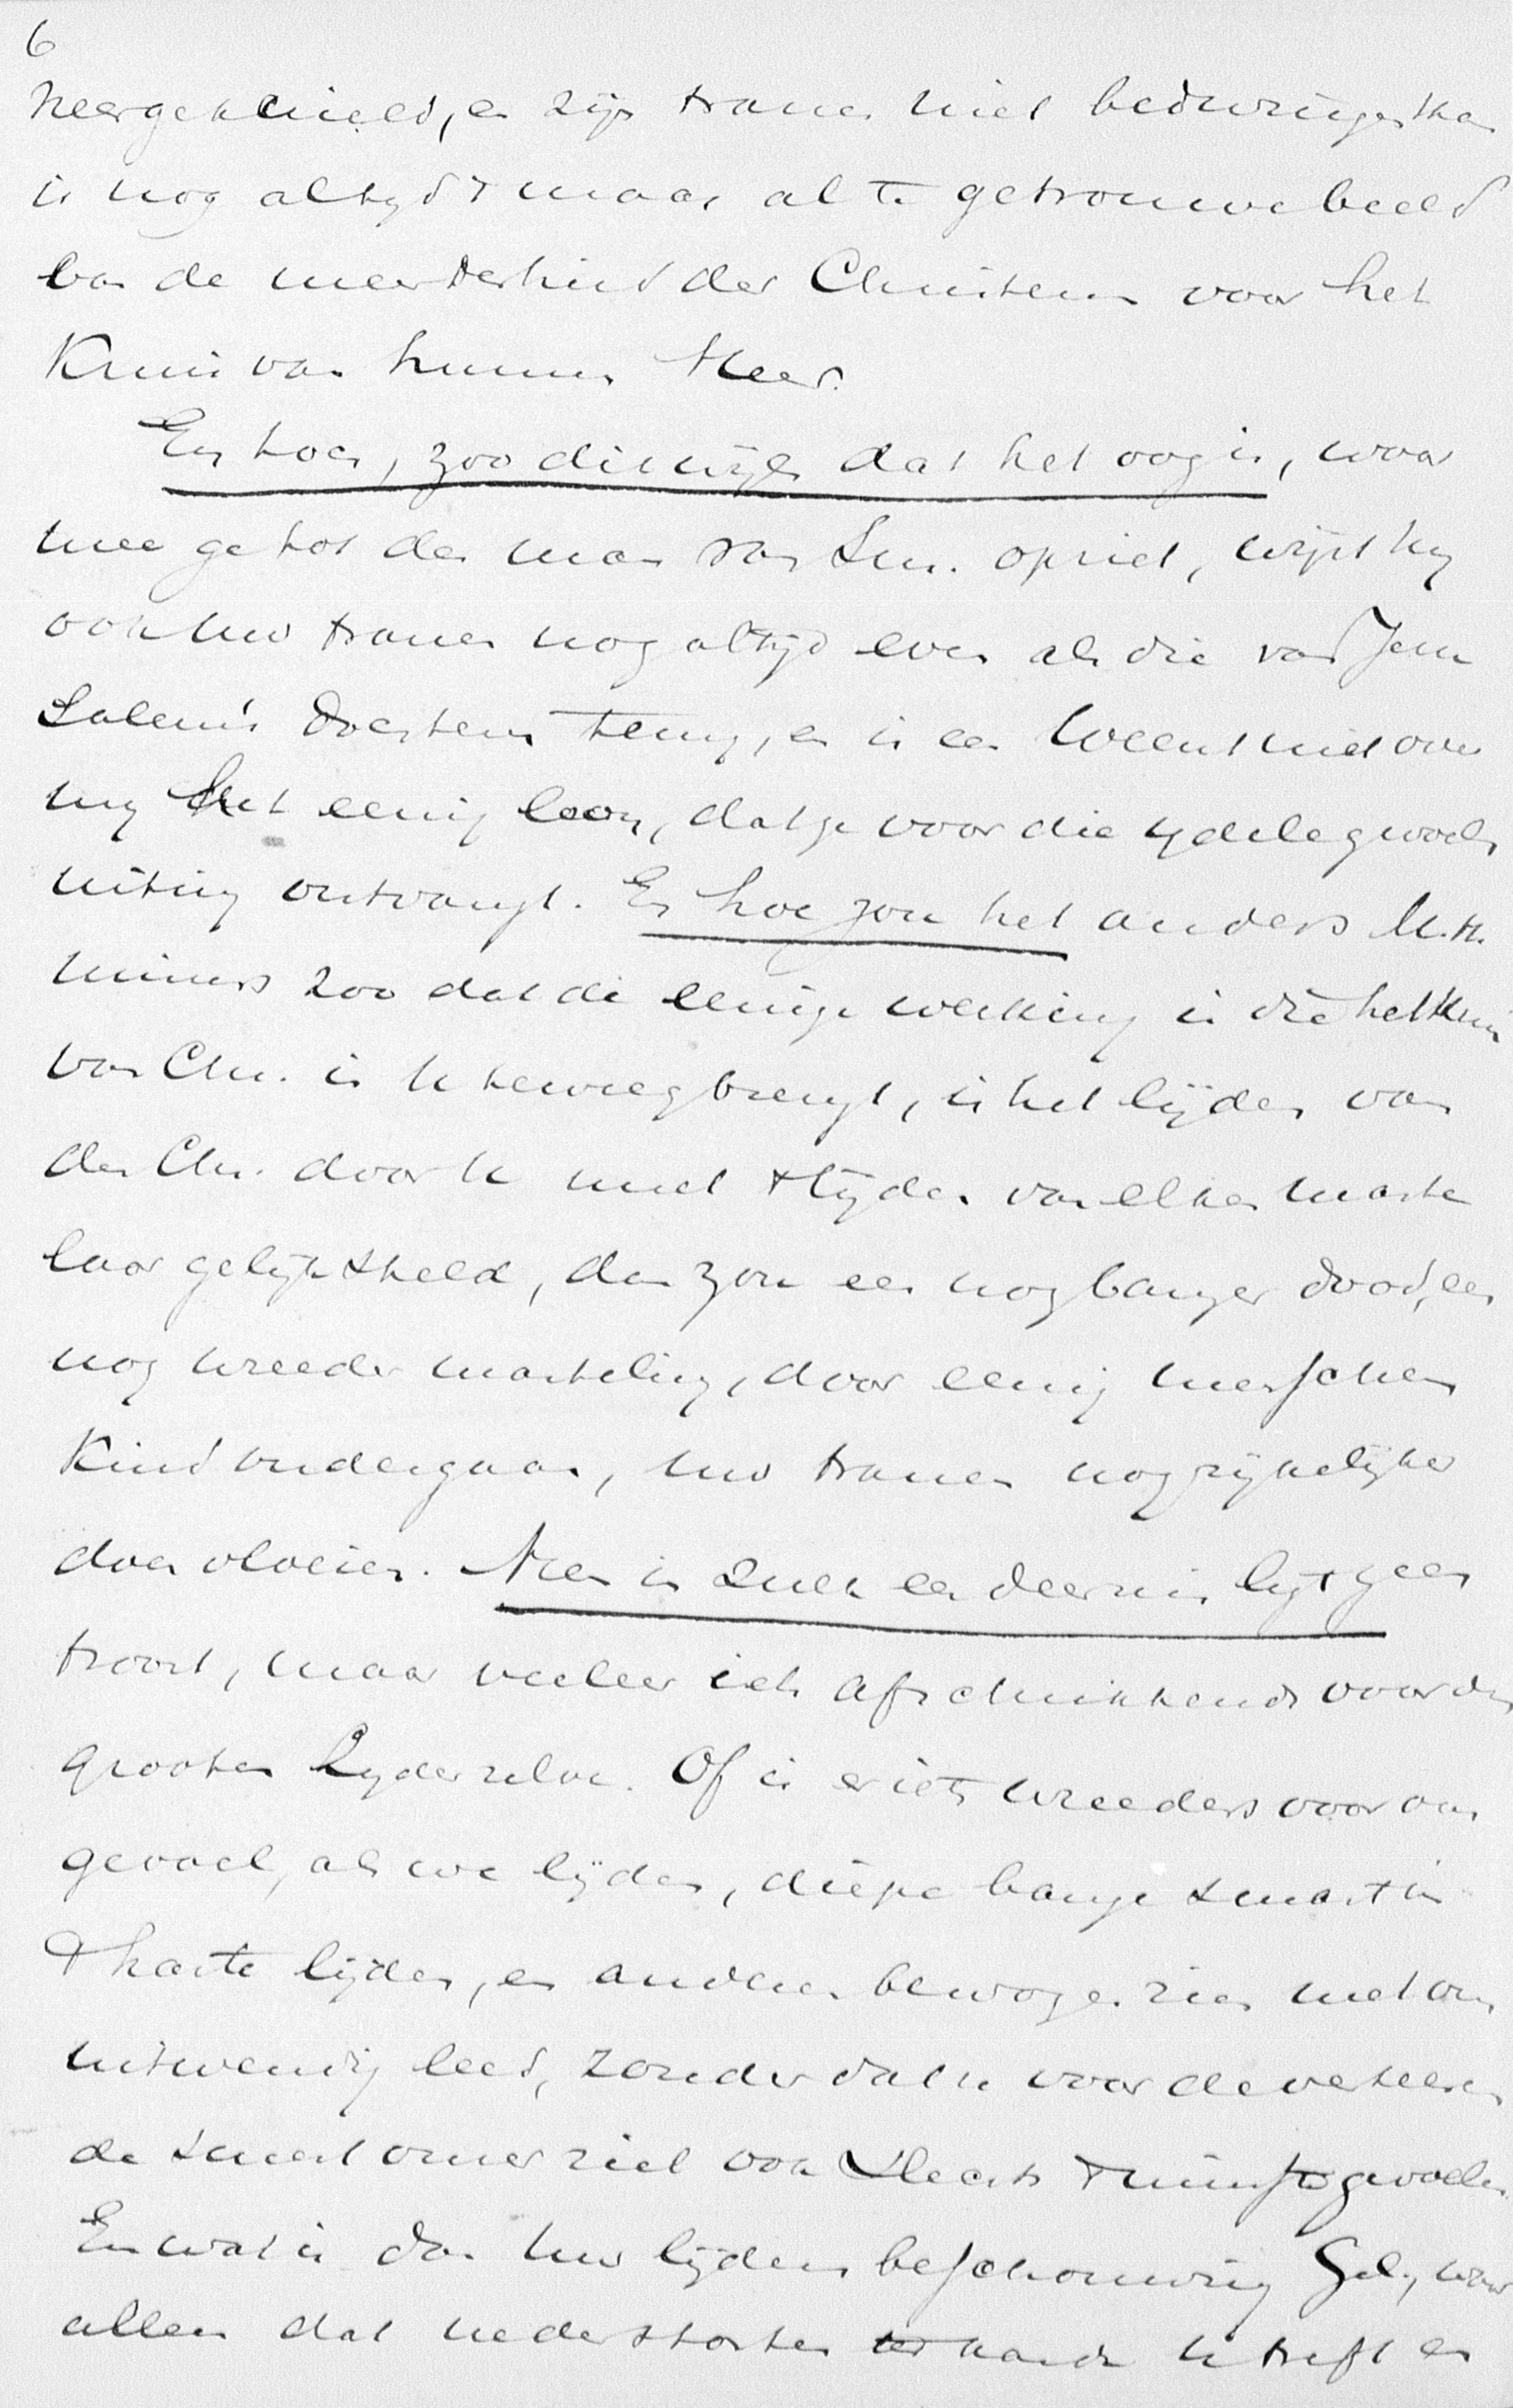 6
neergeknield, en zijn tranen niet bedwingen kan
is nog altyd 't maar al te getrouwe beeld
van de meerderheid der Christenen voor het
Kruis van hunnen Heer.
En toch, zoo dikwijls dat het oog is, waar
mee ge tot den man van Sm. opziet, wijst hy
ook uw tranen nog altijd even als die van Jeru
Salem's dochteren terug, en is een Weent niet over
my het eenig loon, dat ge voor die ydele gevoels
uiting ontvangt. En hoe zou het anders M.H.
immers zoo dat de eenige werking is die het Kruis
van Chr. in U teweegbrengt, is het lijden van
den Chr. door U met 't lijden van elken marte
laar gelijk gesteld, dan zou een nog banger dood, een
nog wreeder marteling, door eenig menschen
Kind ondergaan, uw tranen nog rijkelijker
doen vloeien. Neen in zulk een deernis ligt geen
troost, maar veeleer iets afschrikkends voor den
grooten Lyder zelve. Of is er iets wreeders voor ons
gevoel, als we lijden, diepe bange smart in
't harte lijden, en anderen bewogen zien met ons
uitwendig leed, zonder dat ze voor de verteeren
de smart onzer ziel ook slechts 't minste gevoelen.
En wat is dan uw lijdensbeschouwing Gel., waar
alleen dat nederstorten ter aarde U treft en